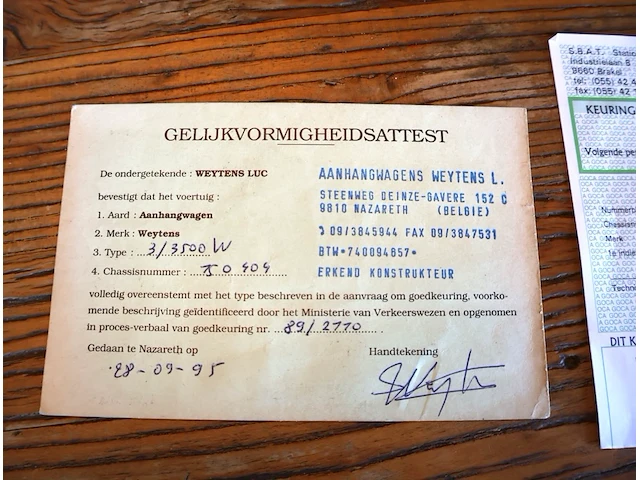 GELIJKVORMIGHEIDSATTEST
De ondergetekende : WEYTENS LUC
bevestigt dat het voertuig :
1. Aard : Aanhangwagen
2. Merk : Weytens
3. Type : 3/3500 W
4. Chassisnummer :
AANHANGWAGENS WEYTENS L.
STEENWEG DEINZE-GAVERE 152 C
9810 NAZARETH (BELGIE)
09/3845944 FAX 09/3847531
BTW*740094857*
ERKEND KONSTRUKTEUR
volledig overeenstemt met het type beschreven in de aanvraag om goedkeuring, voorko-
mende beschrijving geïdentificeerd door het Ministerie van Verkeerswezen en opgenomen
in proces-verbaal van goedkeuring nr. 89/2110 .
Gedaan te Nazareth op
28-09-95
Handtekening
S.B.A.T. Station
Industrielaan 8
9660 Brakel
tel: (055) 42 4
fax: (055) 42
KEURING
Volgende pe
Nummerb
Chassisn
Merk
1e indie
Techn
DIT K